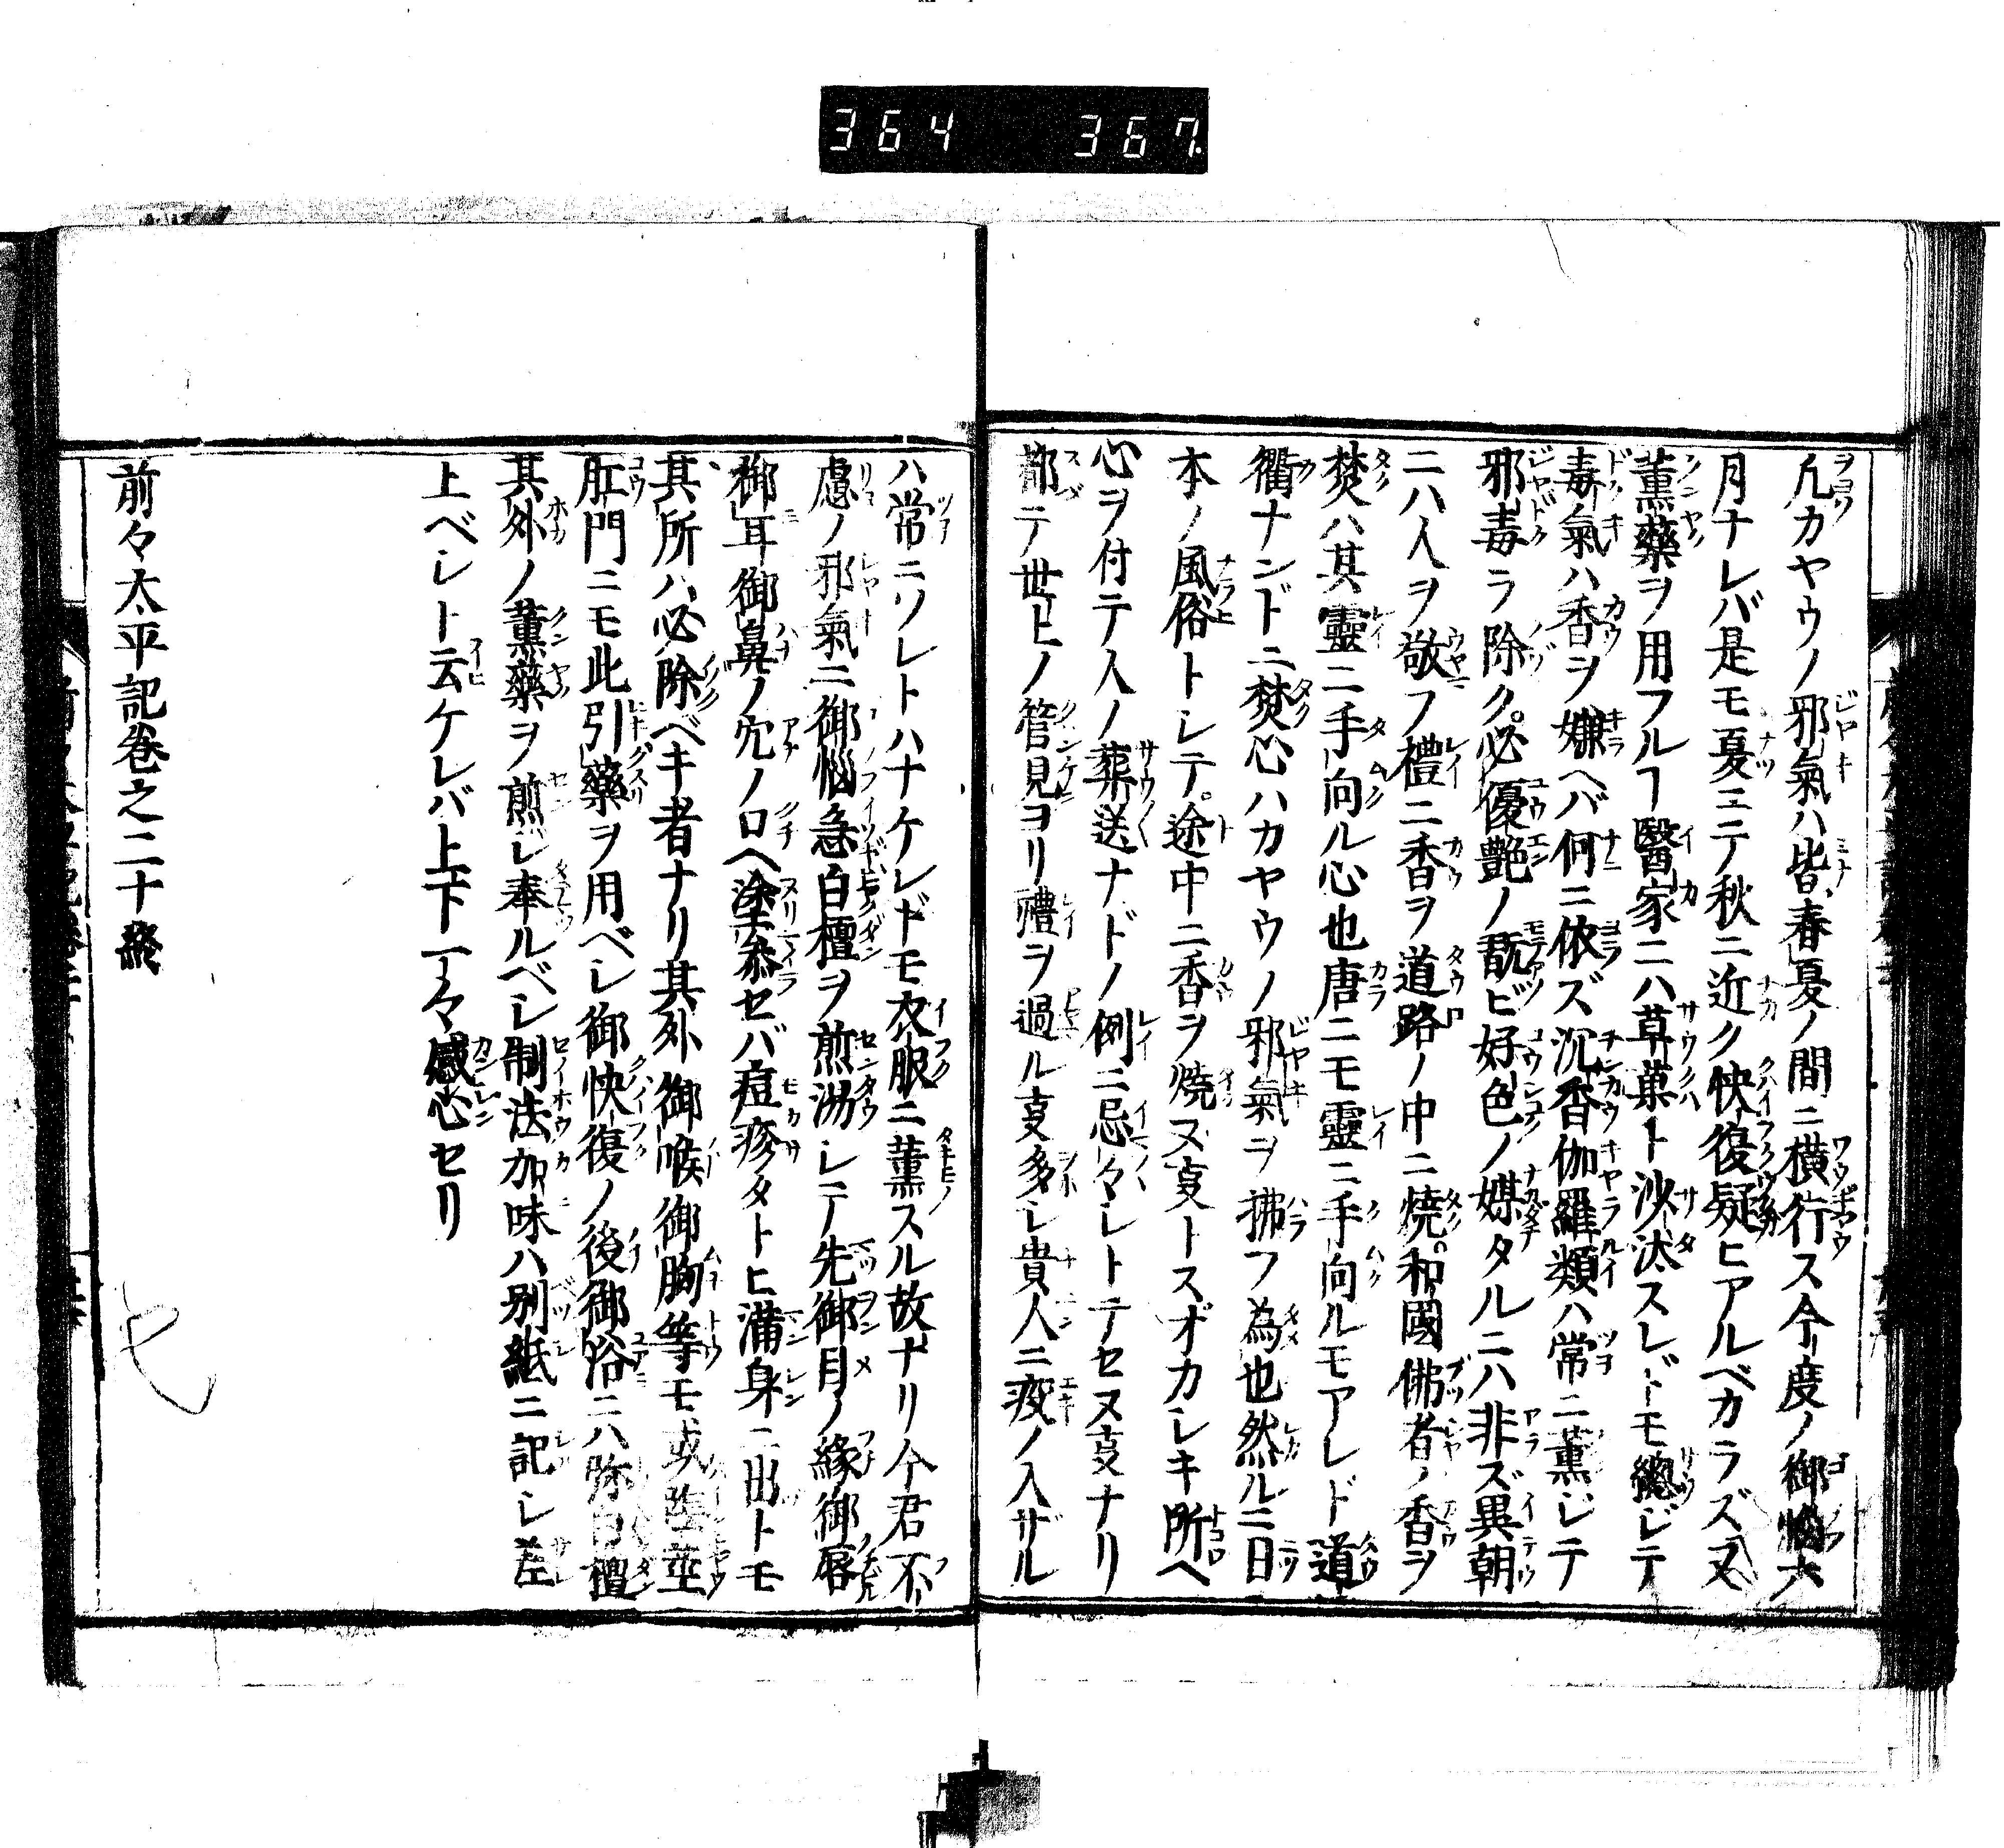 364 367
凢カヤウノ邪氣ハ皆春夏ノ間ニ横行ス今度ノ御惱六
月ナレバ是モ夏ニテ秋ニ近ク快復疑ヒアルベカラズ又
薫藥ヲ用フルヿ醫家ニハ草菓ト沙汰スレドモ總ジテ
毒氣ハ香ヲ嫌ヘバ何ニ依ズ沉香伽羅類ハ常ニ薫ジテ
邪毒ヲ除ク必優艶ノ翫ビ好色ノ媒タルニハ非ズ異朝
ニハ人ヲ敬フ禮ニ香ヲ道路ノ中ニ燒和國佛者ノ香ヲ
焚ハ其靈ニ手向ル心也唐ニモ靈ニ手向ルモアレド道
衢ナンドニ焚心ハカヤウノ邪氣ヲ拂フ為也然ルニ日
本ノ風俗トレテ途中ニ香ヲ燒ヌ叓トスオカレキ所ヘ
心ヲ付テ人ノ葬送ナドノ例ニ忌々レトテセヌ叓ナリ
都テ世上ノ管見ヨリ禮ヲ過ル叓多レ貴人ニ疫ノ入ザル
ハ常ニソレトハナケレドモ衣服ニ薫スル故ナリ今君不
慮ノ邪氣ニ御惱急白檀ヲ煎湯レテ先御目ノ緣御唇
御耳御鼻ノ穴ノ口ヘ塗參セバ痘疹タトヒ滿身ニ出トモ
其所ハ必除ベキ者ナリ其外御喉御胸等モ或陰莖
肛門ニモ此引藥ヲ用ベレ御快復ノ後御浴ニハ弥白檀
其外ノ薫藥ヲ煎レ奉ルベレ制法加味ハ别紙ニ記レ差
上ベレト云ケレバ上下一々感心セリ
前々太平記巻之二十終